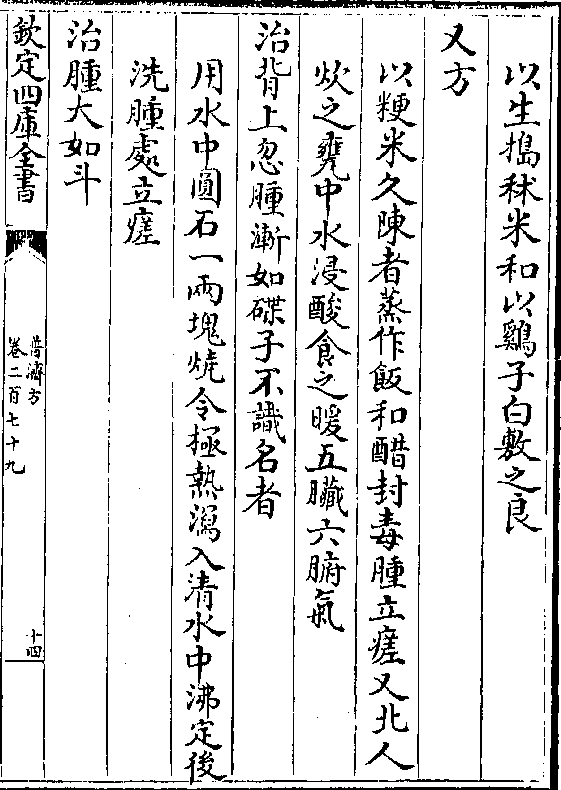 以生搗秫米和以鷄子白敷之良
又方
以粳米久陳者蒸作飯和醋封毒腫立瘥又北人
炊之甕中水浸酸食之暖五臟六腑氣
治背上忽腫漸如碟子不識名者
用水中圓石一兩塊燒令極熱瀉入清水中沸定後
洗腫處立瘥
治腫大如斗
欽定四庫全書
普濟方
卷二百七十九
十四